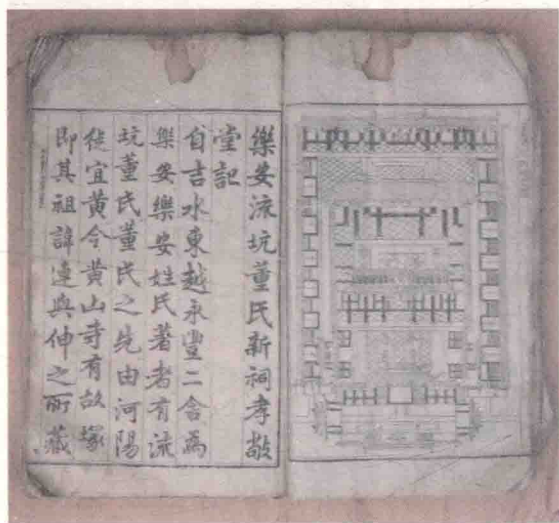 樂安流坑董氏新祠孝敬
堂記
自吉水東越永豐二舍為
樂安樂安姓氏著者有流
坑董氏董氏之先由河陽
徙宜黃今黃山寺有故塚
即其祖諱連與伸之所藏